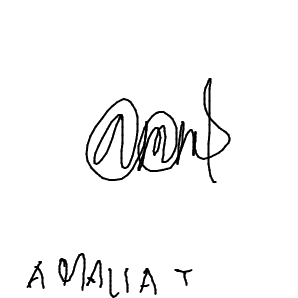 AMALIA T